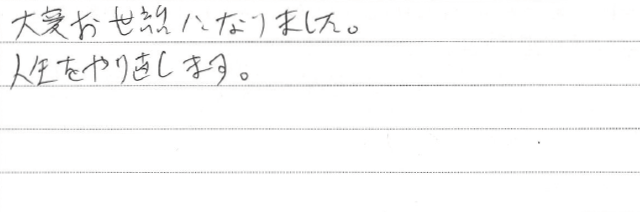 大変お世話になりました。
人生をやり直します。